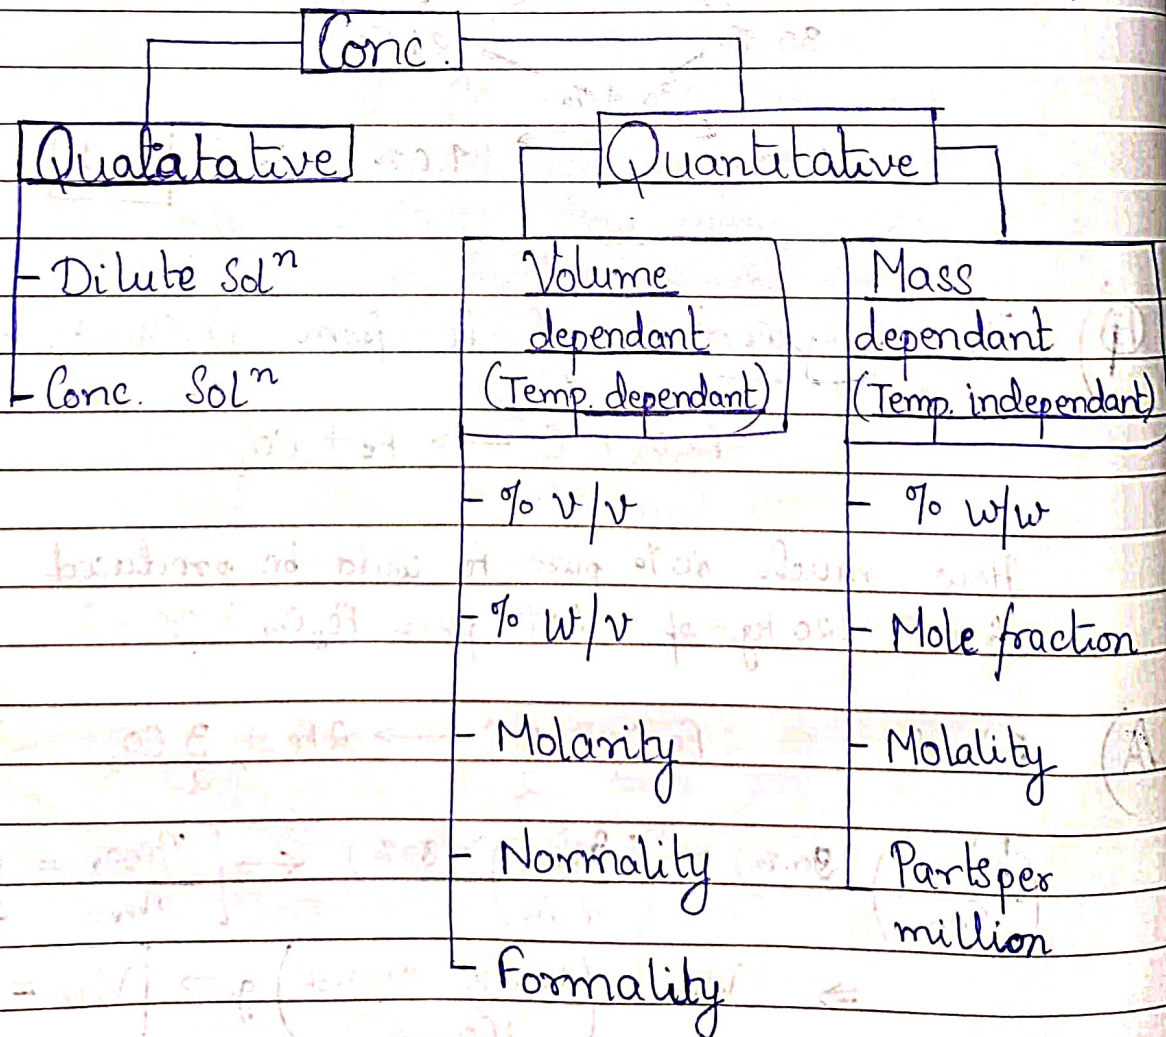 Conc.
Qualatative
Quantitative
- Dilute Solⁿ
- Conc. Solⁿ
Volume
dependant
(Temp. dependant)
- % v/v
- % w/v
- Molarity
- Normality
- Formality
Mass
dependant
(Temp. independant)
- % w/w
- Mole fraction
- Molality
Parts per
million